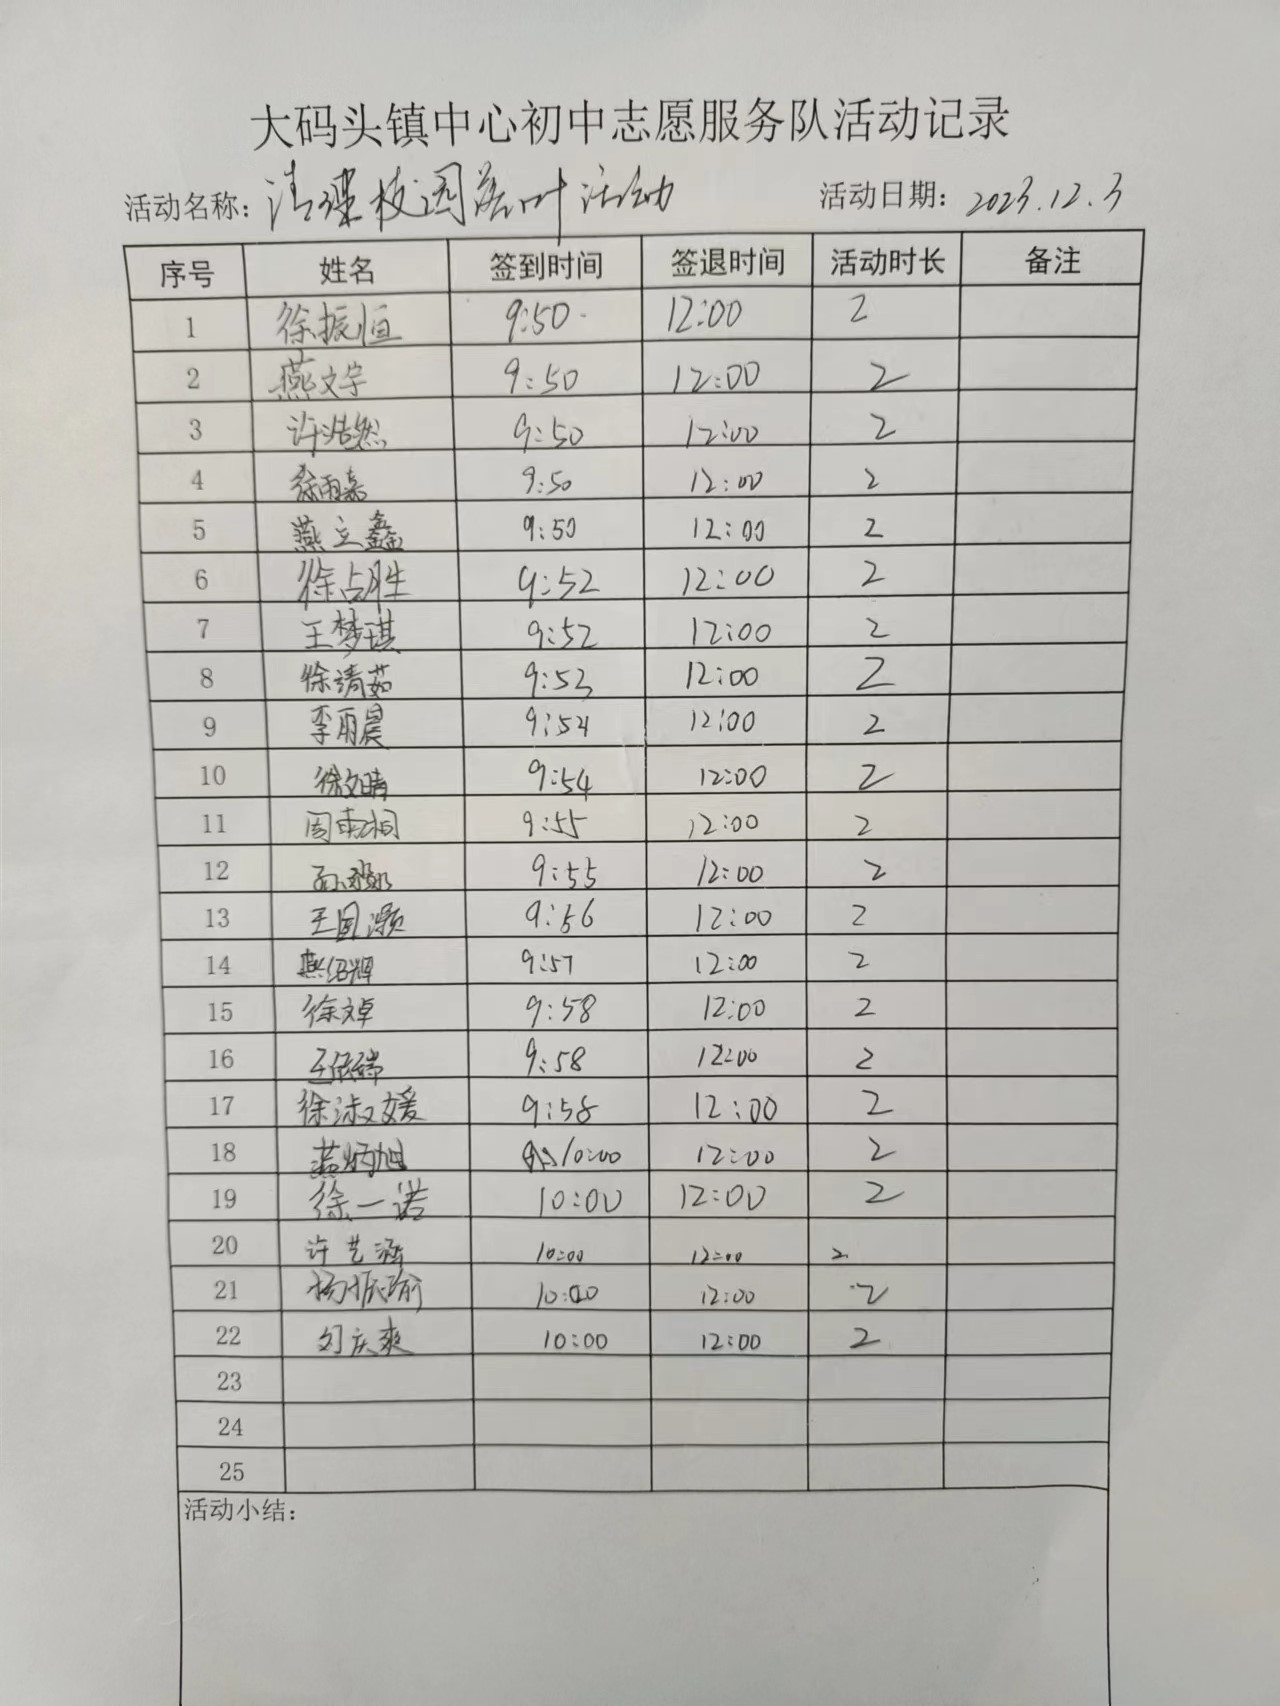 大码头镇中心初中志愿服务队活动记录
活动名称：清理校园落叶活动 活动日期：2023.12.3
序号 姓名 签到时间 签退时间 活动时长 备注
1 徐振恒 9:50 12:00 2
2 燕文宇 9:50 12:00 2
3 许浩然 9:50 12:00 2
4 徐雨嘉 9:50 12:00 2
5 燕立鑫 9:50 12:00 2
6 徐占胜 9:52 12:00 2
7 王梦琪 9:52 12:00 2
8 徐靖茹 9:53 12:00 2
9 李雨晨 9:54 12:00 2
10 徐文晴 9:54 12:00 2
11 周雨桐 9:55 12:00 2
12 9:55 12:00 2
13 王国灏 9:56 12:00 2
14 燕绍辉 9:57 12:00 2
15 徐文卓 9:58 12:00 2
16 王依瑞 9:58 12:00 2
17 徐淑媛 9:58 12:00 2
18 燕炳旭 10:00 12:00 2
19 徐一诺 10:00 12:00 2
20 许艺涵 10:00 12:00 2
21 杨振瑜 10:00 12:00 2
22 刘庆爽 10:00 12:00 2
23
24
25
活动小结：